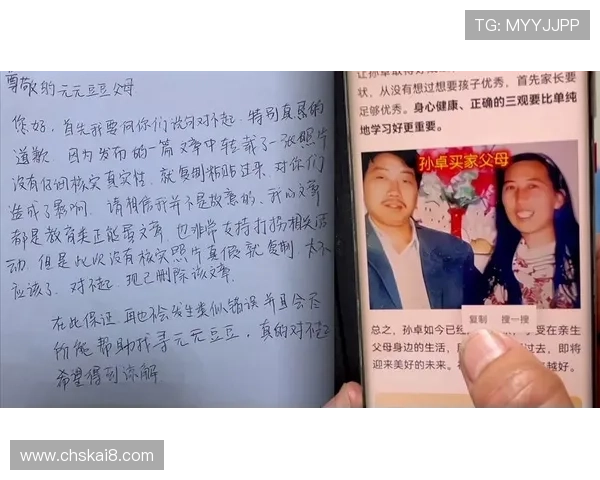 TG: MYYJJPP
尊敬的元元豆豆父母
您好，首先我要向你们说句对不起，特别真恳的
道歉，因为发布的一篇文章中转载了一张照片
没有仔细核实真实性，就复制粘贴过来，对你们
造成了影响，请相信我并不是故意的，我的文章
都是教育类正能量文章，也非常支持打拐相关活
动，但是此次没有核实照片真假就复制，太不
应该了，对不起，现已删除该文章。
在此保证，再也不会发生类似错误并且会尽
所能帮助找寻元元豆豆，真的对不起
希望得到谅解
让孙卓取得好
状，从没有想过想要孩子优秀，首先家长要
足够优秀。身心健康、正确的三观要比单纯
地学习好更重要。
孙卓买家父母
复制 搜一搜
总之，孙卓如今已经 享受在亲生
父母身边的生活， 过去，即将
迎来美好的未来。 越好。
www.chskai8.com